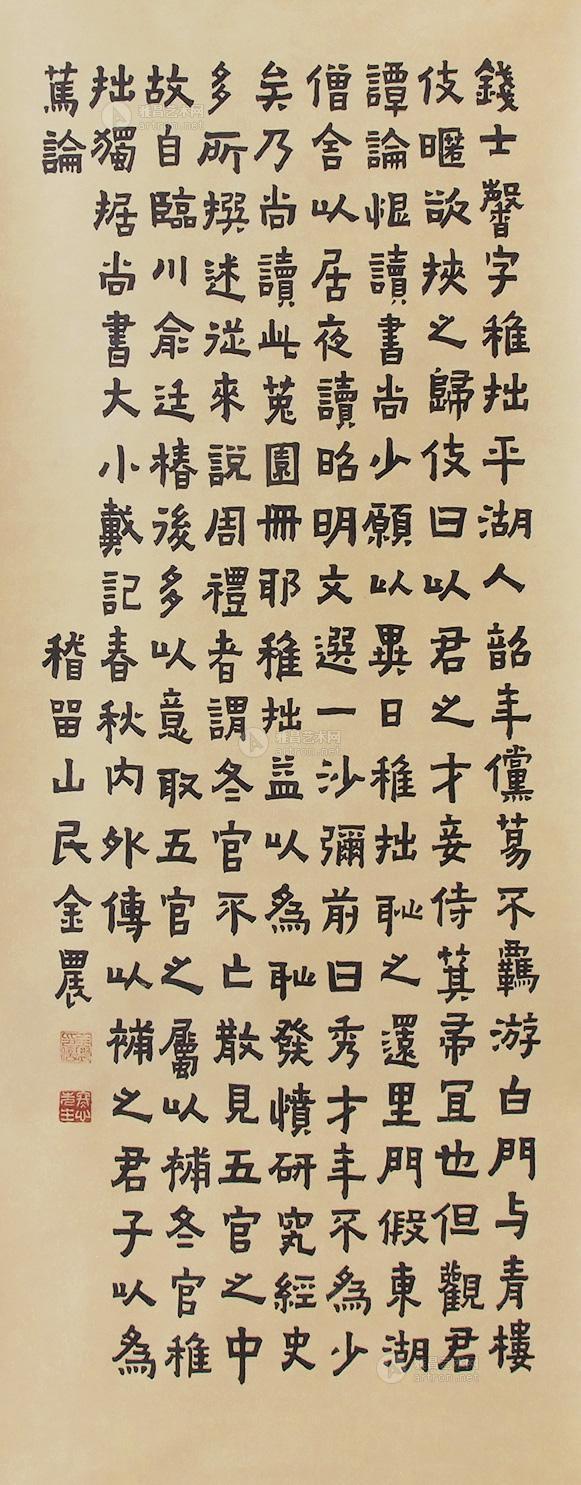 錢士馨字稚拙平湖人韶年儻蕩不羈游白門与青樓
伎暱欲挾之歸伎曰以君之才妾侍萁帚冝也但觀君
譚論恨讀書尚少願以異日稚拙恥之還里門假東湖
僧舍以居夜讀昭明文選一沙彌前曰秀才年不為少
矣乃尚讀此菟園冊耶稚拙益以為恥發憤研究經史
多所撰述從來說周禮者謂冬官不亡散見五官之中
故自臨川俞廷椿後多以意取五官之屬以補冬官稚
拙獨據尚書大小戴記春秋內外傳以補之君子以為
篤論 稽留山民金農
金農印信
冬心先生
雅昌艺术网
artron.net
雅昌艺术网
artron.net
雅昌艺术网
artron.net